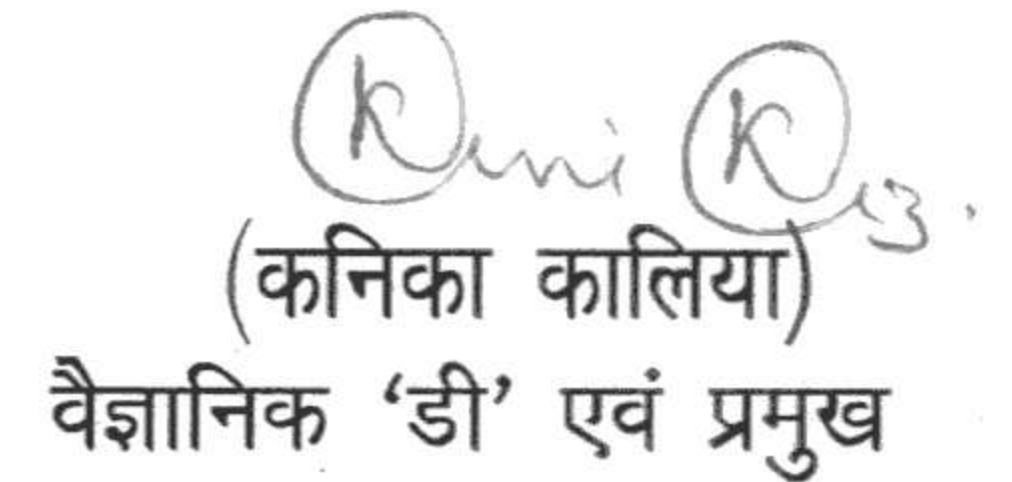 (कनिका कालिया)
वैज्ञानिक ‘डी’ एवं प्रमुख